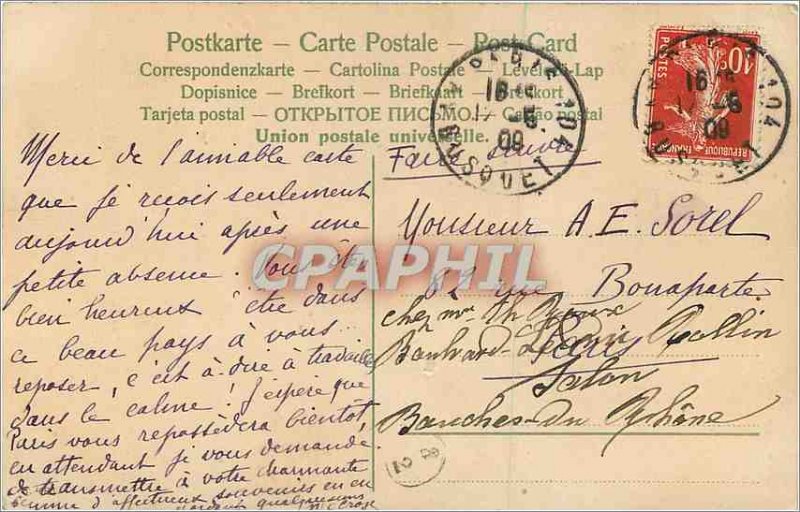 Postkarte – Carte Postale – Post Card
Correspondenzkarte – Cartolina Postale – Levelező-Lap
Dopisnice – Brefkort – Briefkaart – Brevkort
Tarjeta postal – ОТКРЫТОЕ ПИСЬМО – Cartão postal
Union postale universelle.
Merci de l'aimable carte
que je reçois seulement
aujourd'hui après une
petite absence. Vous êtes
bien heureux d'être dans
ce beau pays à vous...
reposer, c'est-à-dire à travailler
dans le calme! J'espère que
Paris vous repossèdera bientôt,
en attendant je vous demande
de transmettre à votre charmante
femme d'affectueux souvenirs en en
gardant quelques uns
Faire suivre
Monsieur A. E. Sorel
82 rue Bonaparte
Paris
chez Mr Th
Boulevard Ledru Rollin
Salon
Bouches-du-Rhône
10c
POSTES
REPUBLIQUE FRANÇAISE
PARIS 104
18
17 -8
09
BOUSQUET
CPARAPHIL